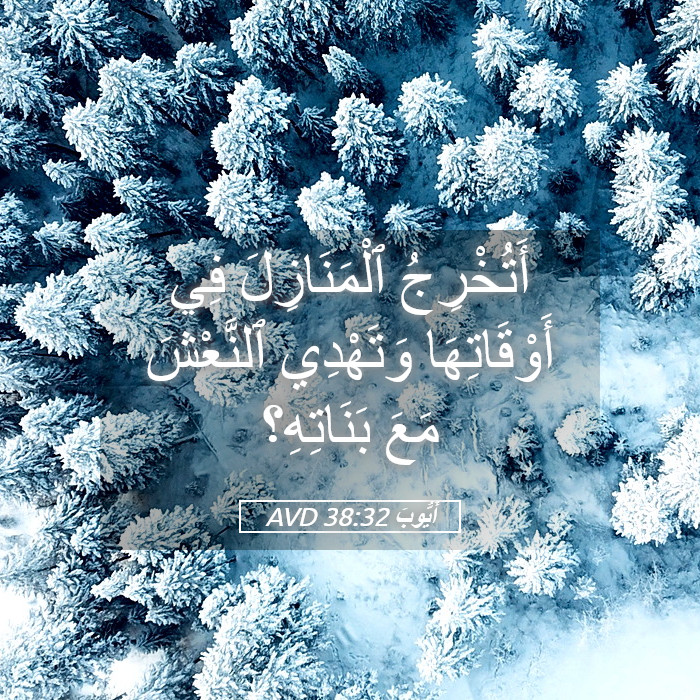 أَتُخْرِجُ ٱلْمَنَازِلَ فِي
أَوْقَاتِهَا وَتَهْدِي ٱلنَّعْشَ
مَعَ بَنَاتِهِ؟
أَيُّوبَ 38:32 AVD